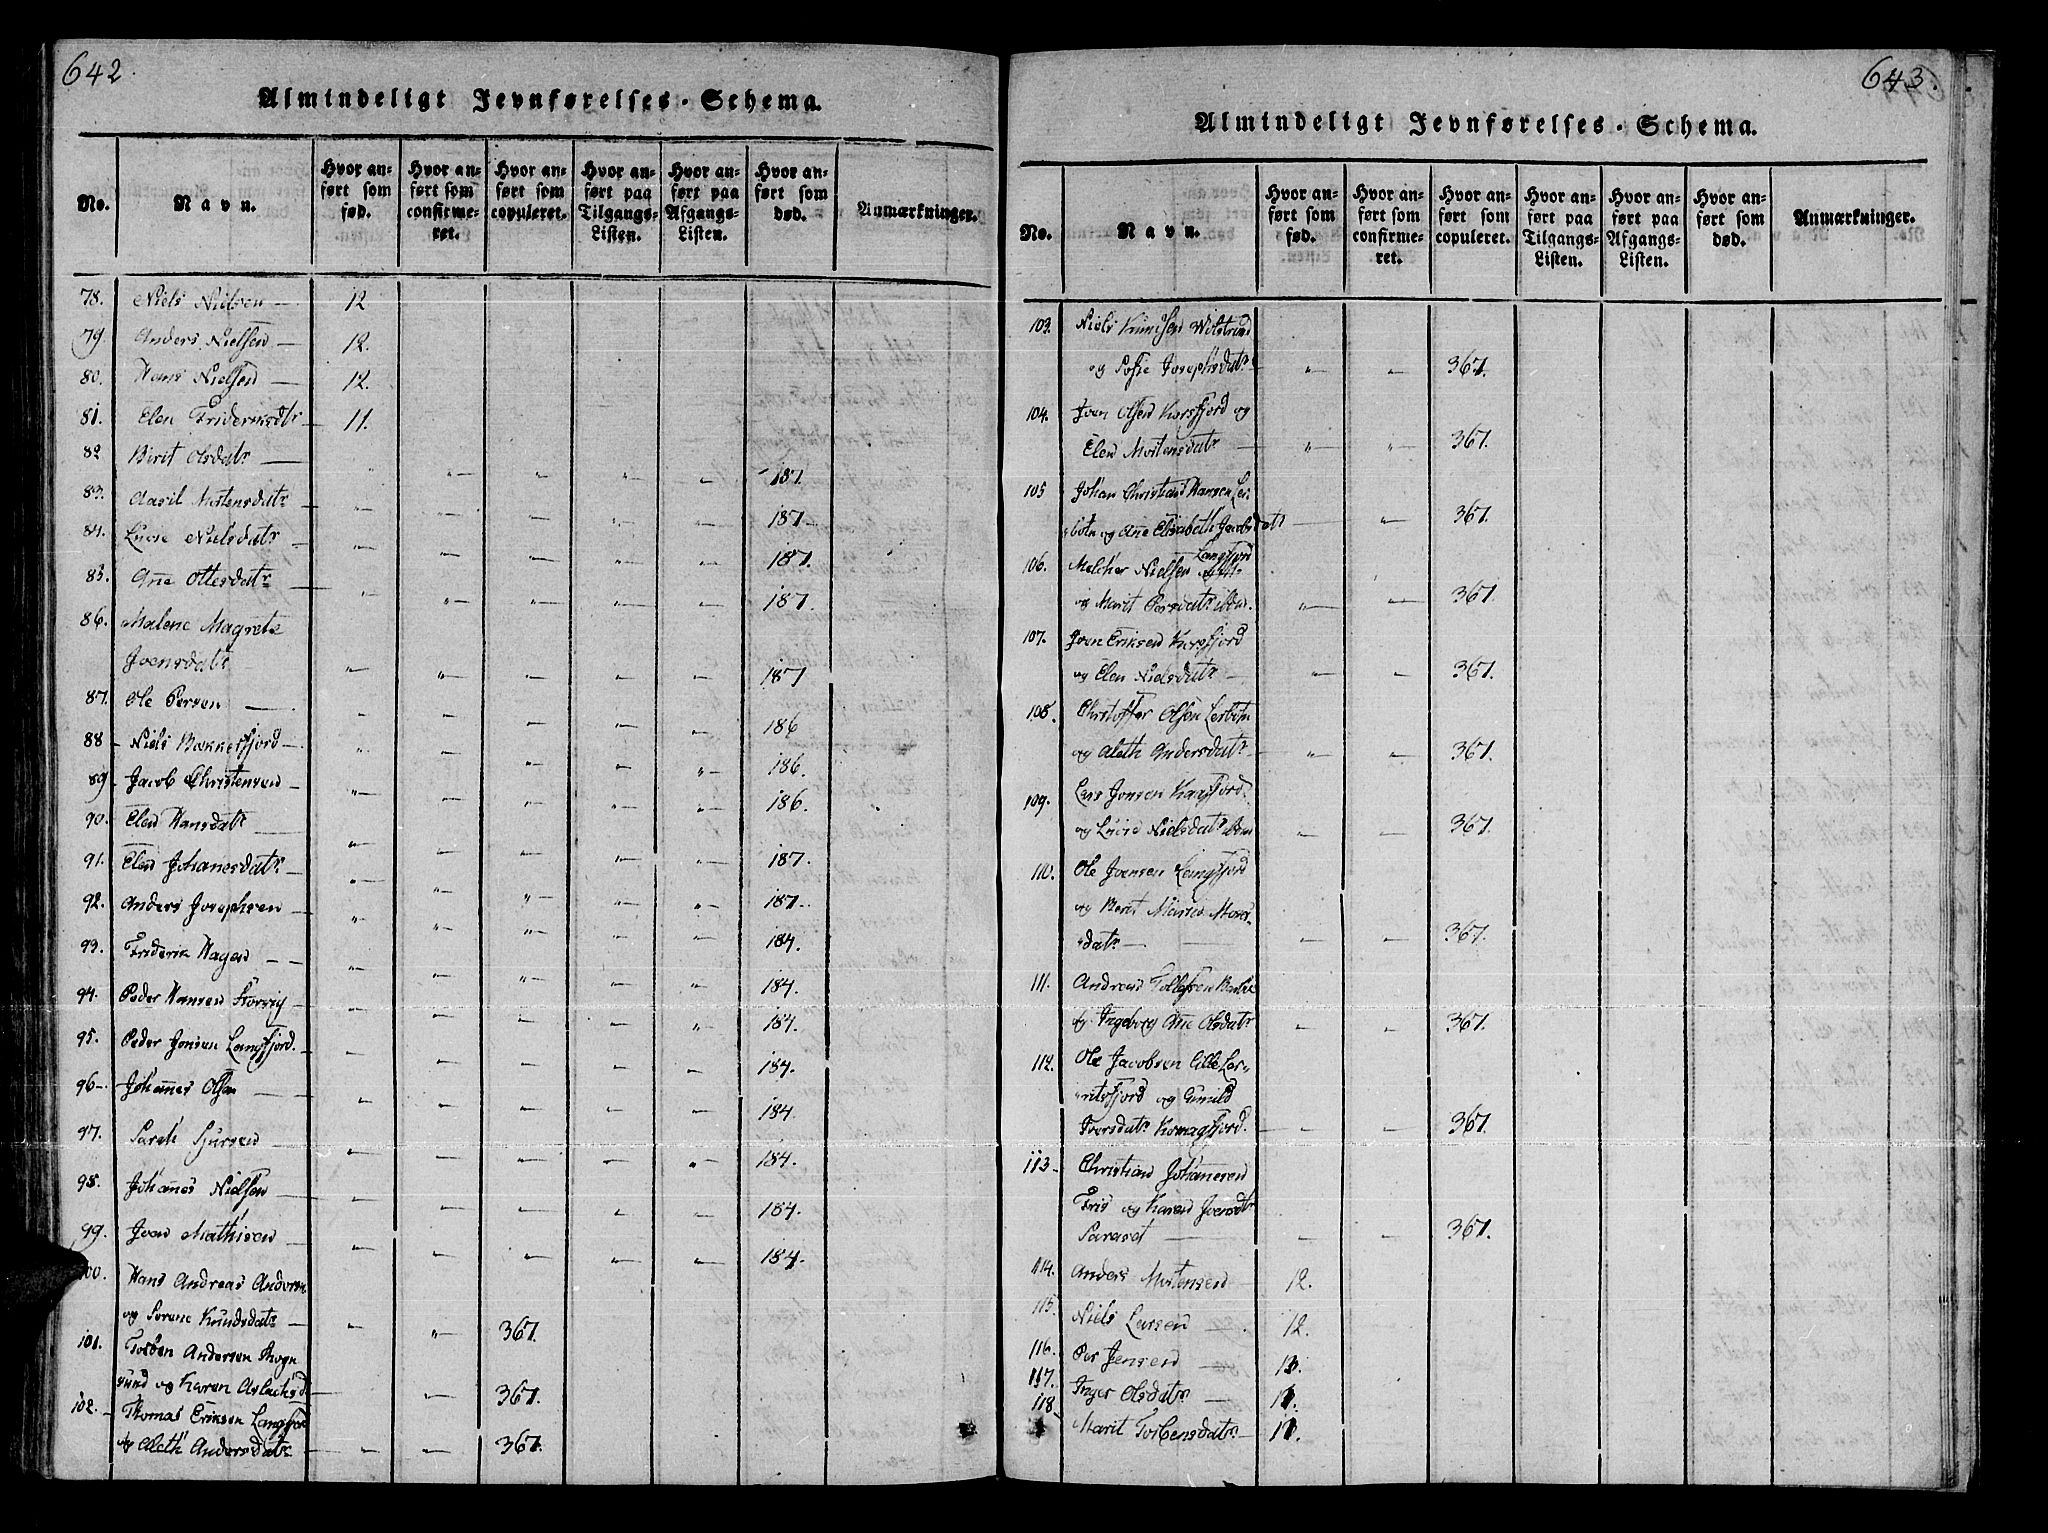 642.
Almindeligt Jevnførelses-Schema.
No.
Navn.
Hvor an-
ført som
fød.
Hvor an-
ført som
confirme-
ret.
Hvor an-
ført som
copuleret.
Hvor an-
ført paa
Tilgangs-
Listen.
Hvor an-
ført paa
Afgangs-
Listen.
Hvor an-
ført som
død.
Anmærkninger.
78. Niels Nielsen — 12
79. Anders Nielsen — 12.
80. Hans Nielsen — 12.
81. Elen Frideriksdtr — 11.
82 Birit Olsdatr — " " " " " 187.
83. Aasil Mortensdatr " " " " " 187.
84. Lucie Nielsdatr — " " " " " 187.
85. Ane Ottesdatr — " " " " " 187.
86. Malene Magrete
Joensdatr — " " " " " 187
87. Ole Persen — " " " " " 186
88 - Niels Bækkerfjord — " " " " " 186.
89. Jacob Christensen — " " " " " 186.
90. Elen Hansdatr — " " " " " 187.
91. Elen Johanesdatr — " " " " " 187.
92. Anders Josephsen — " " " " " 184.
93. Friderik Hagen — " " " " " 184.
94. Peder Hansen Storvig — " " " " " 184.
95. Peder Jonsen Langfjord. " " " " " 184.
96- Johannes Olsen — " " " " " 184.
97. Sarah Sjursen — " " " " " 184.
98. Johanes Nielsen — " " " " " 184.
99. Joen Mathisen — " " " " " 184.
100. Hans Andreas Andersen
og Sørene Knudsdatr — " " 367.
101. Torben Andersen Rogn
sund og Karen Aslachsd — " 367.
102. - Thomas Eriksen Langfjor
og Aleth Andersdatr — " " 367.
643.
Almindeligt Jevnførelses-Schema.
No.
Navn.
Hvor an-
ført som
fød.
Hvor an-
ført som
confirme-
ret.
Hvor an-
ført som
copuleret.
Hvor an-
ført paa
Tilgangs-
Listen.
Hvor an-
ført paa
Afgangs-
Listen.
Hvor an-
ført som
død.
Anmærkninger.
103. Niels Knudsen
og Sofie Josephsdatr — " " 367.
104. Joen Olsen Korsfjord og
Elen Mortensdatr — " " 367.
105 Johan Christian Hansen Ler-
botn og Ane Elisabeth Jacobsdatr — " 367.
106. Melcher Nielsen Langfjord
og Marit Persdatr ibdm. " " 367.
107. Joen Eriksen Korsfjord
og Elen Nielsdatr — " " 367.
108. Christoffer Olsen Lerbotn
og Aleth Andersdatr — " " 367.
109. Lars Jonsen Kaafjord.
og Lucie Nielsdatr ibdm " " 367.
110. Ole Joensen Langfjord
og Berit Maria
datr — " " 367.
111. Andreas Tollefsen
og Ingeborg Ane Olsdatr " " 367.
112. Ole Jacobsen Lille Ler-
ritsfjord og Gunild
Iversdatr Komagfjord. — " 367.
113- Christian Johannesen
Friis og Karen Joensdtr
— " " 367.
114. Anders Mortensen — 12.
115. Niels Larsen — 12.
116. Per Jensen — 13.
117. Inger Olsdatr — 11.
118. Marit Torbensdatr. — 11.